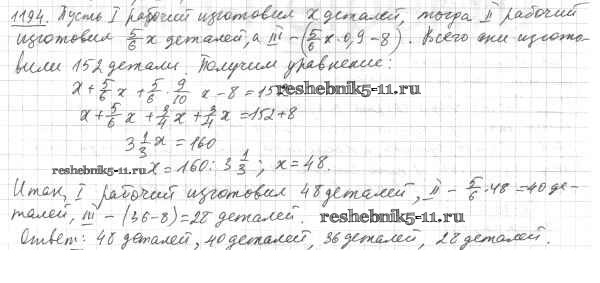 1194. Пусть I рабочий изготовил x деталей, тогда II рабочий
изготовил 5/6 x деталей, а III – (5/6 x · 0,9 – 8). Всего они изгото-
вили 152 детали. Получим уравнение:
x + 5/6 x + 5/6 · 9/10 x – 8 = 152
reshebnik5-11.ru
x + 5/6 x + 3/4 x + 3/4 x = 152 + 8
3 1/3 x = 160
reshebnik5-11.ru
x = 160 : 3 1/3; x = 48.
Итак, I рабочий изготовил 48 деталей, II – 5/6 · 48 = 40 де-
талей, III – (36 – 8) = 28 деталей.
reshebnik5-11.ru
Ответ: 48 деталей, 40 деталей, 36 деталей, 28 деталей.